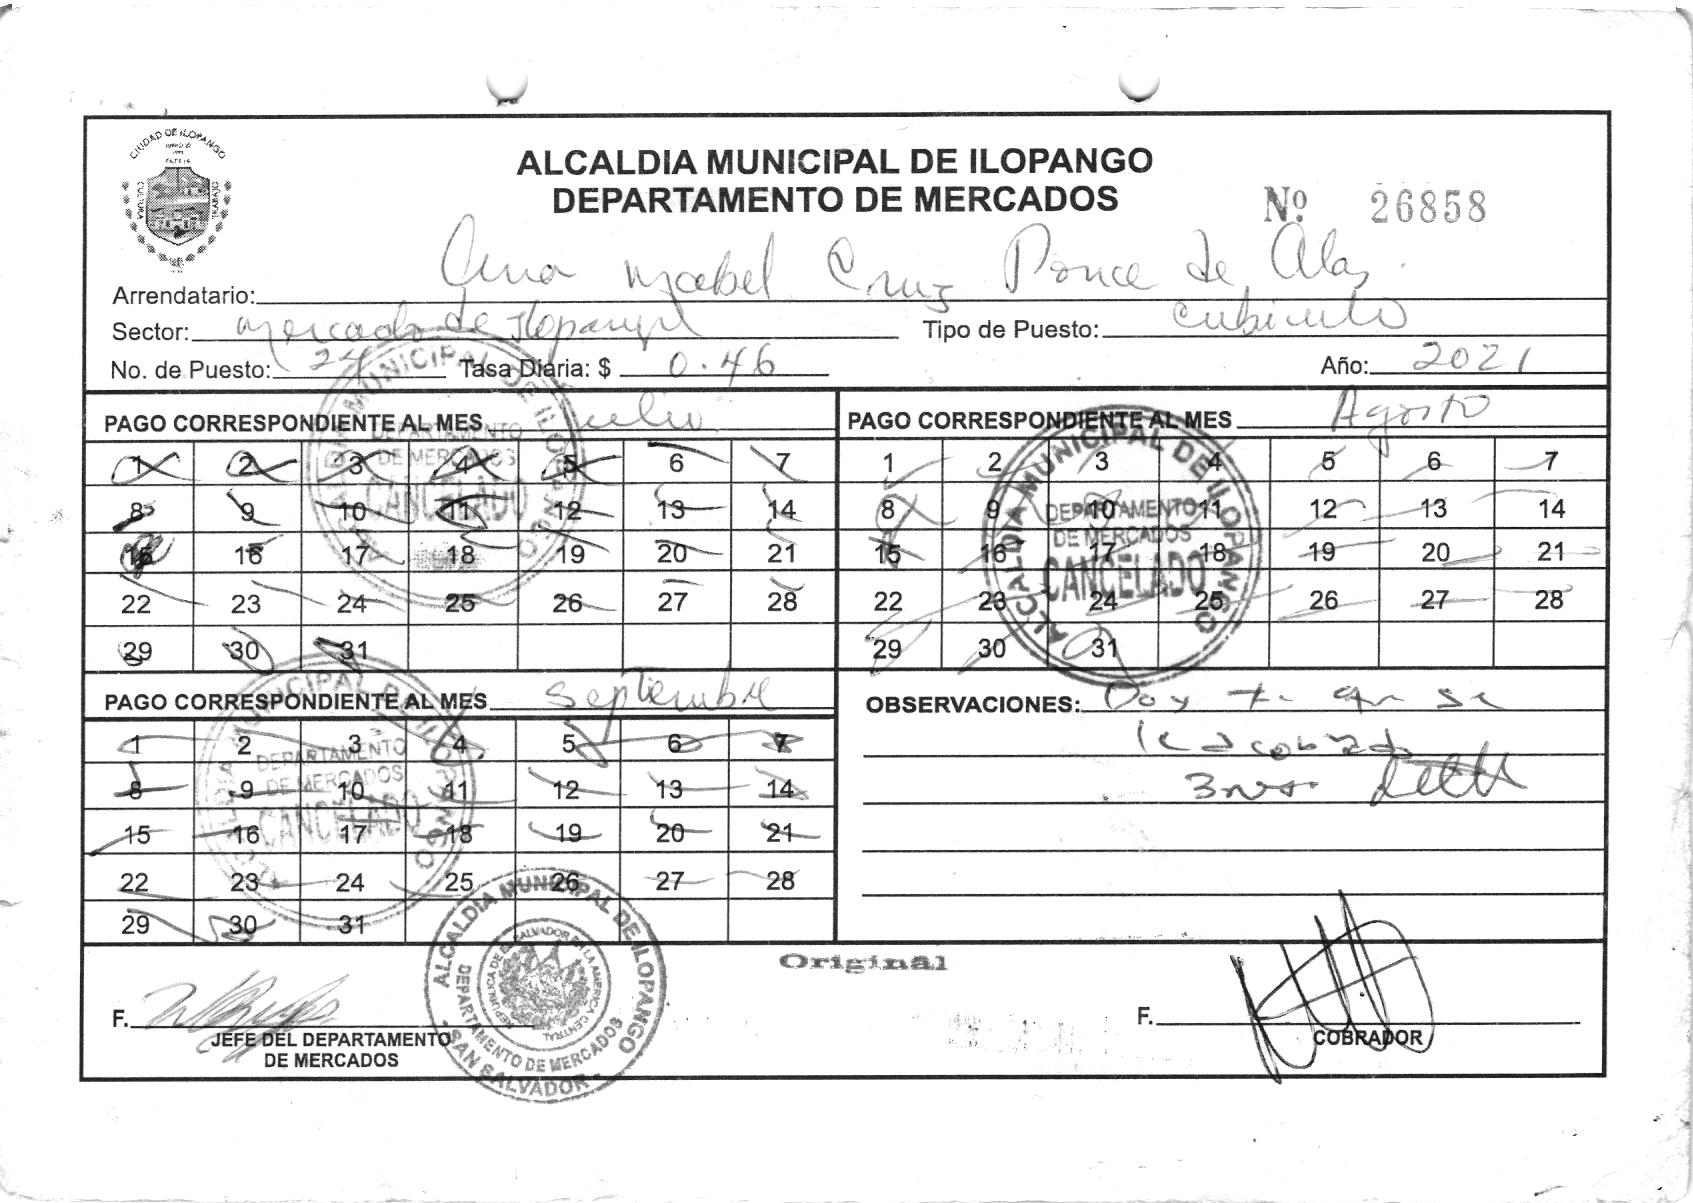 CIUDAD DE ILOPANGO
CULTURA
TRABAJO
ALCALDIA MUNICIPAL DE ILOPANGO
DEPARTAMENTO DE MERCADOS
Nº 26858
Arrendatario: Ana Ysabel Cruz Ponce de Alas.
Sector: Mercado de Ilopango Tipo de Puesto: Cubiculo
No. de Puesto: 24 Tasa Diaria: $ 0.46 Año: 2021
PAGO CORRESPONDIENTE AL MES Julio
1 2 3 4 5 6 7
8 9 10 11 12 13 14
15 16 17 18 19 20 21
22 23 24 25 26 27 28
29 30 31
ALCALDIA MUNICIPAL DE ILOPANGO
DEPARTAMENTO
DE MERCADOS
CANCELADO
PAGO CORRESPONDIENTE AL MES Agosto
1 2 3 4 5 6 7
8 9 10 11 12 13 14
15 16 17 18 19 20 21
22 23 24 25 26 27 28
29 30 31
ALCALDIA MUNICIPAL DE ILOPANGO
DEPARTAMENTO
DE MERCADOS
CANCELADO
PAGO CORRESPONDIENTE AL MES Septiembre
1 2 3 4 5 6 7
8 9 10 11 12 13 14
15 16 17 18 19 20 21
22 23 24 25 26 27 28
29 30 31
ALCALDIA MUNICIPAL DE ILOPANGO
DEPARTAMENTO
DE MERCADOS
CANCELADO
OBSERVACIONES: Doy fe que se
le a cobrado
3
Original
F.
JEFE DEL DEPARTAMENTO
DE MERCADOS
ALCALDIA MUNICIPAL DE ILOPANGO
REPUBLICA DE EL SALVADOR EN LA AMERICA CENTRAL
DEPARTAMENTO DE MERCADOS
SAN SALVADOR
F.
COBRADOR